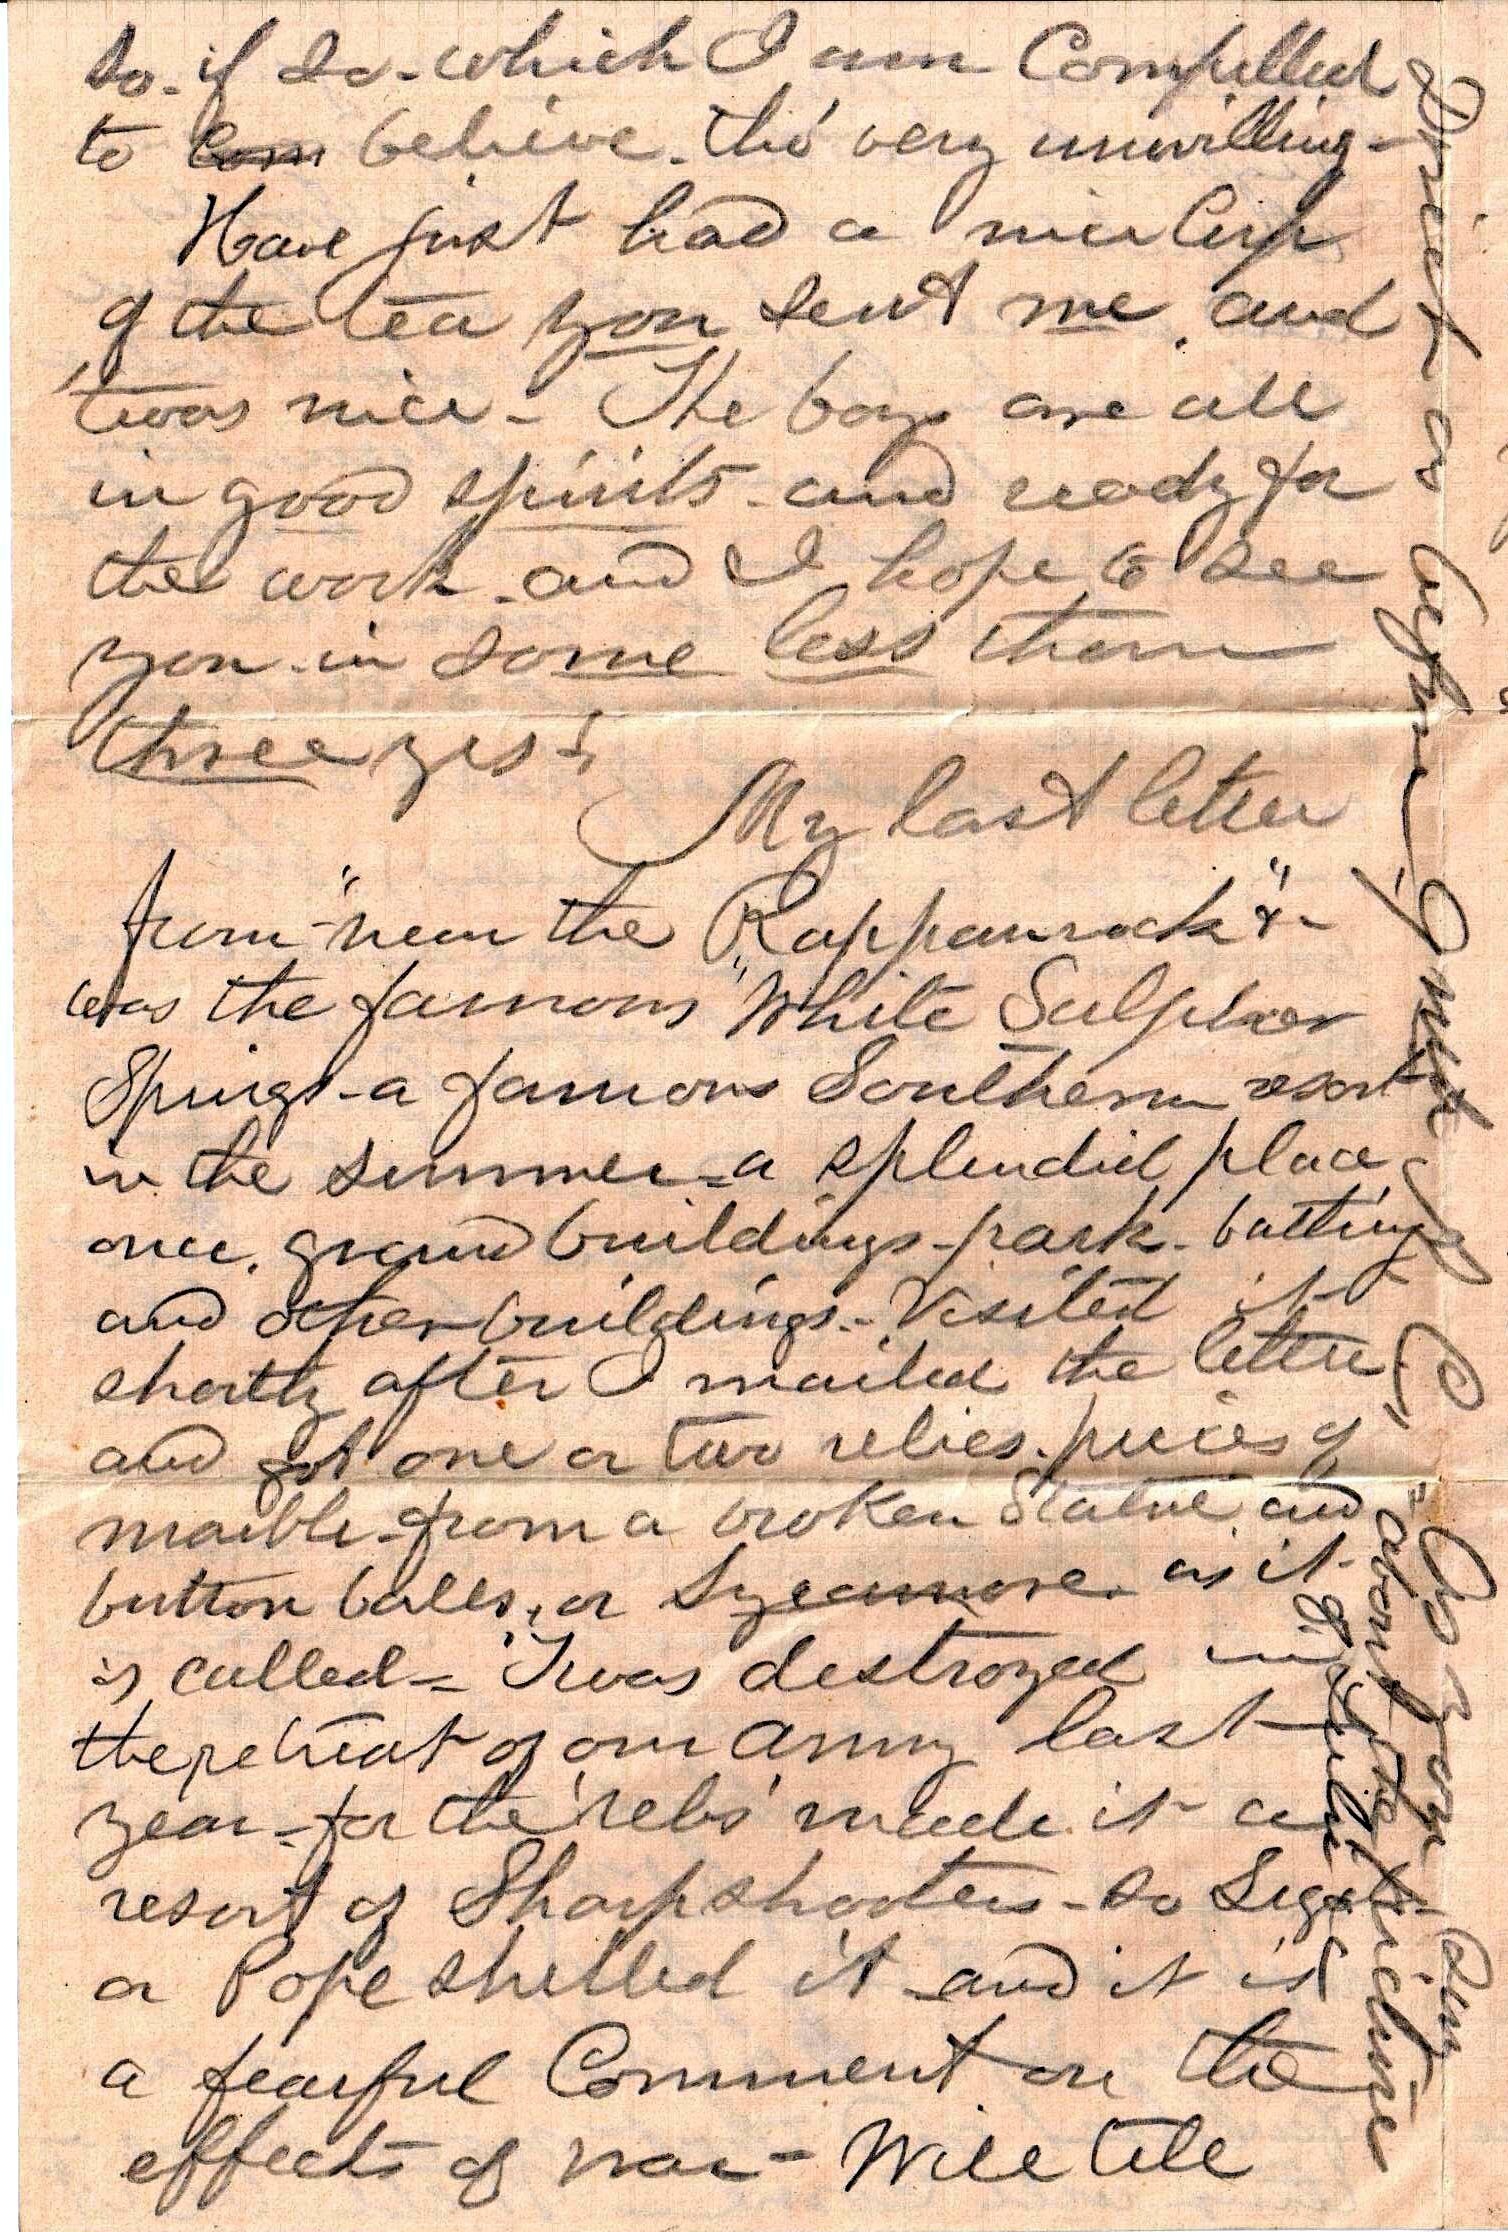 so - if so - which I am Compelled
to com believe - tho' very unwilling -
Have just had a nice Cup
of the tea you sent me. and
'twas nice - The boys are all
in good spirits - and ready for
the work - and I hope to see
you in some less than
three yrs!
My last letter
from "near the Rappannock" &
was the famous "White Sulpher
Springs - a famous Southern resort
in the summer - a splendid place
once. grand buildings - park - batthing
and other buildings - Visited it
shortly after I mailed the letter
and got one or two relics. pieces of
marble - from a broken Statue and
button balls, or Sycamore as it
is called - 'Twas destroyed in
the retreat of our army last
year - for the 'rebs' made it a
resort of Sharpshooters - so Sigel
or Pope shelled it - and it is
a fearful Comment on the
effects of war - Will tell
Direct as before - 9 Mich
As you say
- about the picture